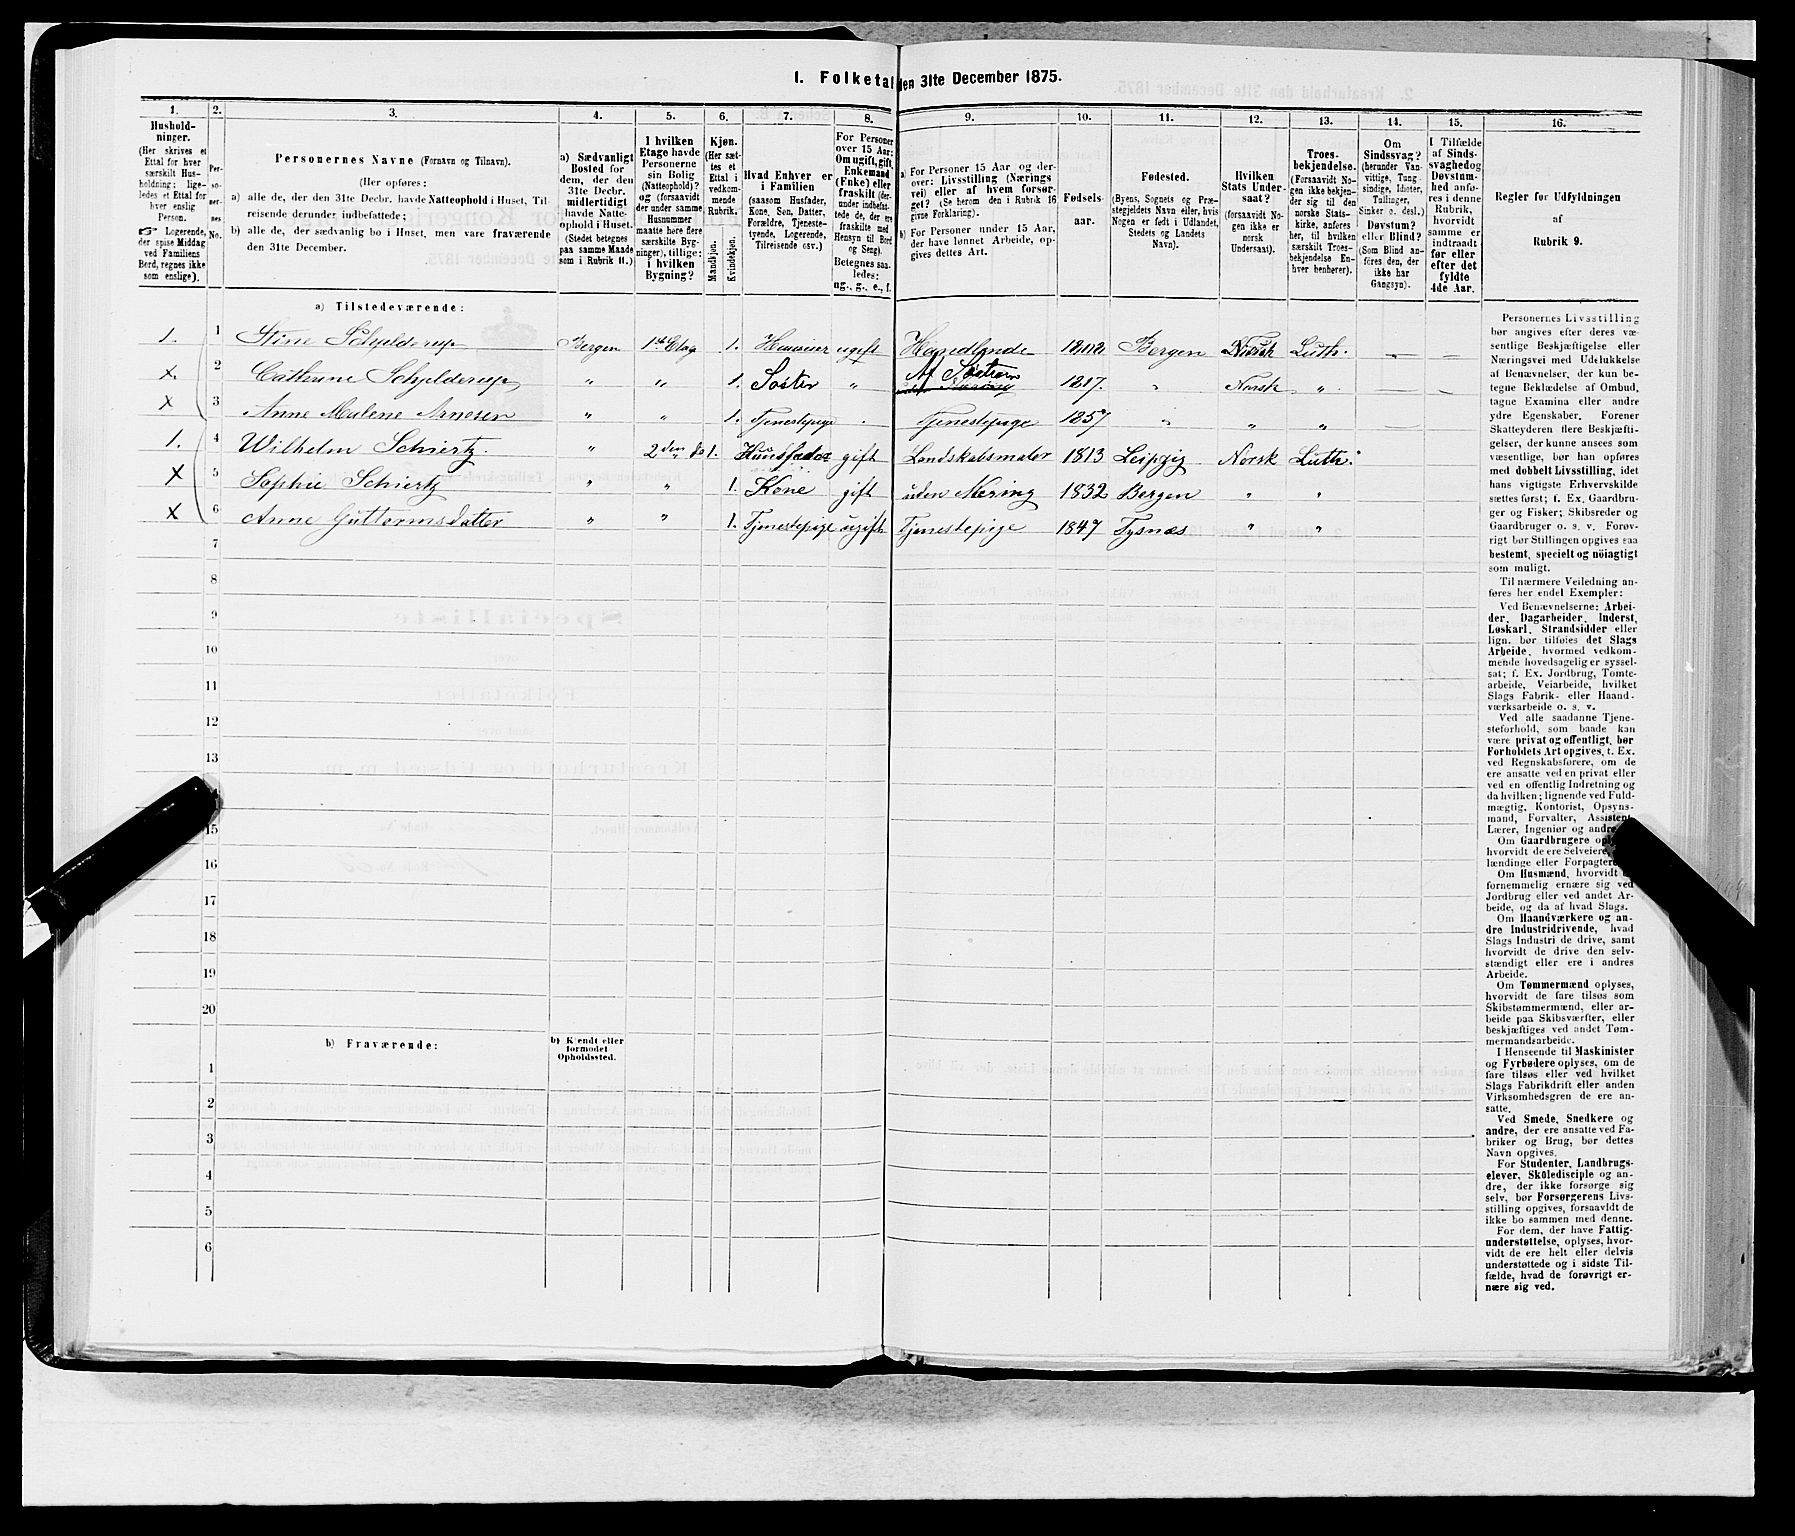 1. Folketal den 31te December 1875.
1. 2. 3. 4. 5. 6. 7. 8. 9. 10. 11. 12. 13. 14. 15. 16.
Hushold-
ninger.
(Her skrives et
Ettal for hver
særskilt Hus-
holdning; lige-
ledes et Ettal for
hver enslig
Person.
☞ Logerende,
der spise Middag
ved Familiens
Bord, regnes ikke
som enslige).
Per-
so-
ner-
nes
No.
Personernes Navne (Fornavn og Tilnavn).
(Her opføres:
a) alle de, der den 31te Decbr. havde Natteophold i Huset, Til-
reisende derunder indbefattede;
b) alle de, der sædvanlig bo i Huset, men vare fraværende
den 31te December.
a) Sædvanligt
Bosted for
dem, der den
31te Decbr.
midlertidigt
havde Natte-
ophold i Huset.
(Stedet betegnes
paa samme Maade
som i Rubrik 11.)
I hvilken
Etage havde
Personerne
sin Bolig
(Natteophold)?
og (forsaavidt
der under samme
Husnummer
maatte høre flere
særskilte Byg-
ninger), tillige:
i hvilken
Bygning?
Kjøn.
(Her sæt-
tes et
Ettal i
vedkom-
mende
Rubrik.
Mandkjøn.
Kvindekjøn.
Hvad Enhver er
i Familien
(saasom Husfader,
Kone, Søn, Datter,
Forældre, Tjeneste-
tyende, Logerende,
Tilreisende osv.)
For Personer
over 15 Aar:
Om ugift, gift,
Enkemand
(Enke) eller
fraskilt (der-
under indbefat-
tede de, der ere
fraskilte med
Hensyn til Bord
og Seng).
Betegnes saa-
ledes:
ug., g., e., f.
a) For Personer 15 Aar og der-
over: Livsstilling (Nærings
vei) eller af hvem forsør-
get? (Se herom den i Rubrik 16
givne Forklaring).
b) For Personer under 15 Aar,
der have lønnet Arbeide, op-
gives dettes Art.
Fødsels-
aar.
Fødested.
(Byens, Sognets og Præ-
stegjeldets Navn eller, hvis
Nogen er født i Udlandet,
Stedets og Landets
Navn).
Hvilken
Stats Under-
saat?
(forsaavidt No-
gen ikke er
norsk
Undersaat).
Troes-
bekjendelse.
(Forsaavidt No-
gen ikke bekjen-
der sig til den
norske Stats-
kirke, anføres
her, til hvilken
særskilt Troes-
bekjendelse En-
hver henhører).
Om
Sindssvag?
(herunder Van-
vittige, Tung-
sindige, Idioter,
Tullinger,
Sinker o. desl.)
Døvstum?
eller Blind?
(Som Blind an-
føres den, der
ikke har
Gangsyn).
I Tilfælde
af Sinds-
svaghed og
Døvstum-
hed anfø-
res i denne
Rubrik,
hvorvidt
samme er
indtraadt
før eller
efter det
fyldte
4de Aar.
Regler for Udfyldningen
af
Rubrik 9.
a) Tilstedeværende:
1. 1 Stine Schjelderup Bergen 1ste Etag 1. Huusmor ugift Handlende 1812 Bergen Norsk Luth. — —
x. 2 Cathrine Schjelderup " " 1. Søster " Af Søstrem 1817. " Norsk " — —
x 3 Anne Malene Arnesen " " 1. Tjenestepige . Tjenestepige 1857 " " "
1. 4 Wilhelm Schiertz. " 2den do 1. Huusfader gift Landskabsmaler 1813 Leipzig Norsk Luth.
x 5 Sophie Schiertz " " 1. Kone gift uden Næring 1832 Bergen " "
x 6 Anne Guttormsdatter " " 1. Tjenestepige ugift Tjenestepige 1847 Tysnæs " "
7
8
9
10
11
12
13
15
16
17
18
19
20
b) Fraværende:
b) Kjendt eller
formodet
Opholdssted.
1
2
3
4
5
6
Personernes Livsstilling
bør angives efter deres væ-
sentlige Beskjæftigelse eller
Næringsvei med Udelukkelse
af Benævnelser, der kun be-
tegne Beklædelse af Ombud,
tagne Examina eller andre
ydre Egenskaber. Forener
Skatteyderen flere Beskjæfti-
gelser, der kunne ansees som
væsentlige, bør han opføres
med dobbelt Livsstilling, idet
hans vigtigste Erhvervskilde
sættes først; f. Ex. Gaardbru-
ger og Fisker; Skibsreder og
Gaardbruger o. s. v. Forøv-
rigt bør Stillingen opgives saa
bestemt, specielt og nöiagtigt
som muligt.
Til nærmere Veiledning an-
føres her endel Exempler:
Ved Benævnelserne: Arbei-
der, Dagarbeider, Inderst,
Løskarl, Strandsidder eller
lign. bør tilføies det Slags
Arbeide, hvormed vedkom-
mende hovedsagelig er syssel-
sat; f. Ex. Jordbrug, Tomte-
arbeide, Veiarbeide, hvilket
Slags Fabrik- eller Haand-
værksarbeide o. s. v.
Ved alle saadanne Tjene-
steforhold, som baade kan
være privat og offentligt, bør
Forholdets Art opgives, f. Ex.
ved Regnskabsførere, om de
ere ansatte ved en privat eller
ved en offentlig Indretning og
da hvilken; lignende ved Fuld-
mægtig, Kontorist, Opsyns-
mand, Forvalter, Assistent,
Lærer, Ingeniør og andre
Om Gaardbrugere
hvorvidt de ere Selveiere,
lændinge eller Forpagtere
Om Husmænd, hvorvidt
fornemmelig ernære sig ved
Jordbrug eller ved andet Ar-
beide, og da af hvad Slags.
Om Haandværkere og an-
dre Industridrivende, hvad
Slags Industri de drive, samt
hvorvidt de drive den selv-
stændigt eller ere i andres
Arbeide.
Om Tømmermænd oplyses,
hvorvidt de fare tilsøs som
Skibstømmermænd, eller ar-
beide paa Skibsværfter, eller
beskjæftiges ved andet Tøm-
mermandsarbeide.
I Henseende til Maskinister
og Fyrbødere oplyses, om de
fare tilsøs eller ved hvilket
Slags Fabrikdrift eller anden
Virksomhedsgren de ere an-
satte.
Ved Smede, Snedkere og
andre, der ere ansatte ved Fa-
briker og Brug, bør dettes
Navn opgives.
For Studenter, Landbrugs-
elever, Skoledisciple og an-
dre, der ikke forsørge sig
selv, bør Forsørgerens Livs-
stilling opgives, forsaavidt de
ikke bo sammen med denne.
For dem, der have Fattig-
understøttelse, oplyses, hvor-
vidt de ere helt eller delvis
understøttede og i sidste Til-
fælde, hvad de forøvrigt er-
nære sig ved.